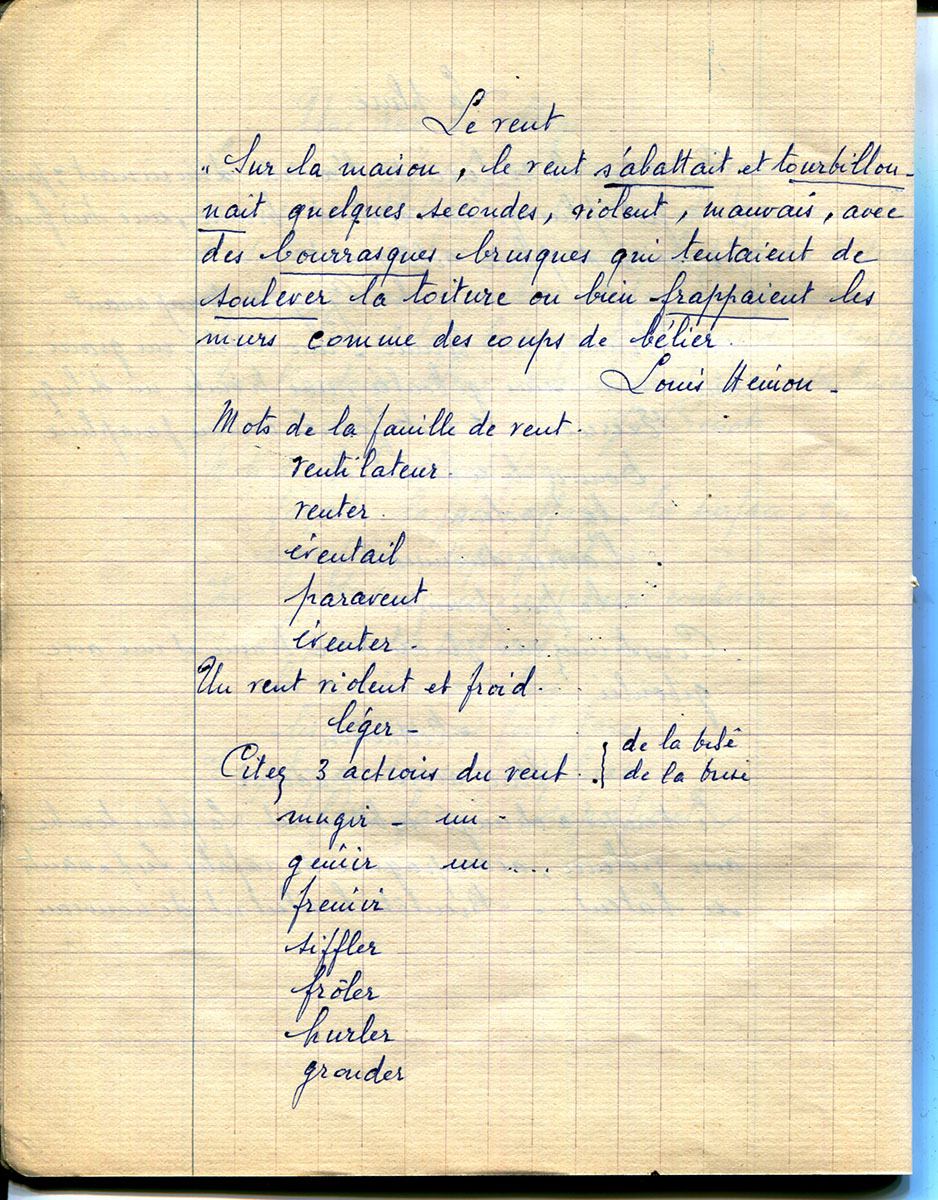 Le vent
"Sur la maison, le vent s'abattait et tourbillon-
nait quelques secondes, violent, mauvais, avec
des bourrasques brusques qui tentaient de
soulever la toiture ou bien frappaient les
murs comme des coups de bélier.
Louis Hémon -
Mots de la famille de vent.
ventilateur.
venter.
éventail
paravent
éventer.
Un vent violent et froid.
léger -
Citez 3 actions du vent. } de la bise
de la brise
mugir - un -
gémir un ...
frémir
siffler
frôler
hurler
gronder